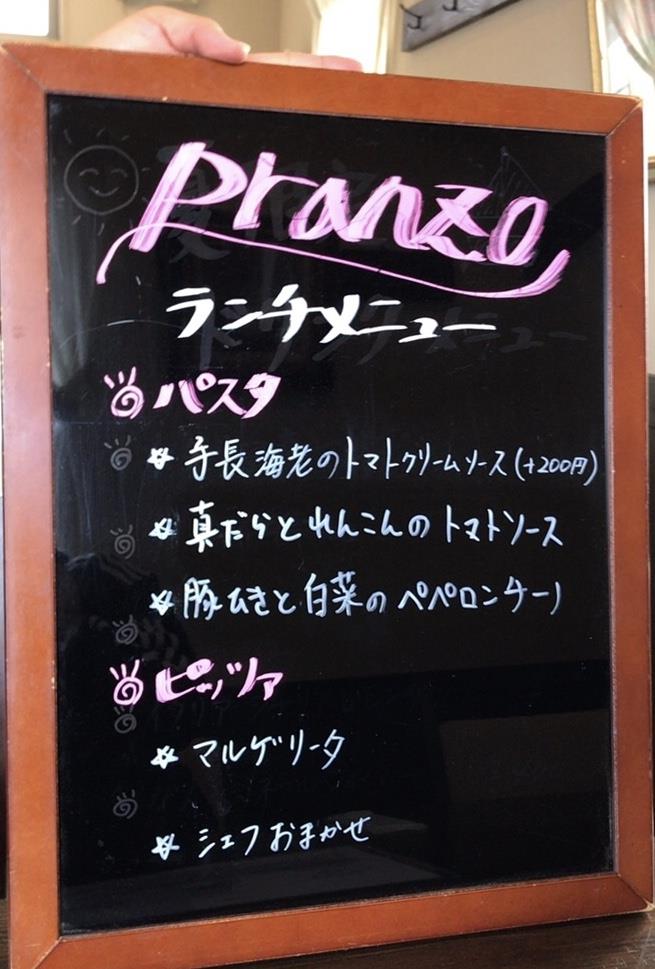 Pranzo
ランチメニュー
パスタ
手長海老のトマトクリームソース(+200円)
真だらとれんこんのトマトソース
豚ひきと白菜のペペロンチーノ
ピッツァ
マルゲリータ
シェフおまかせ